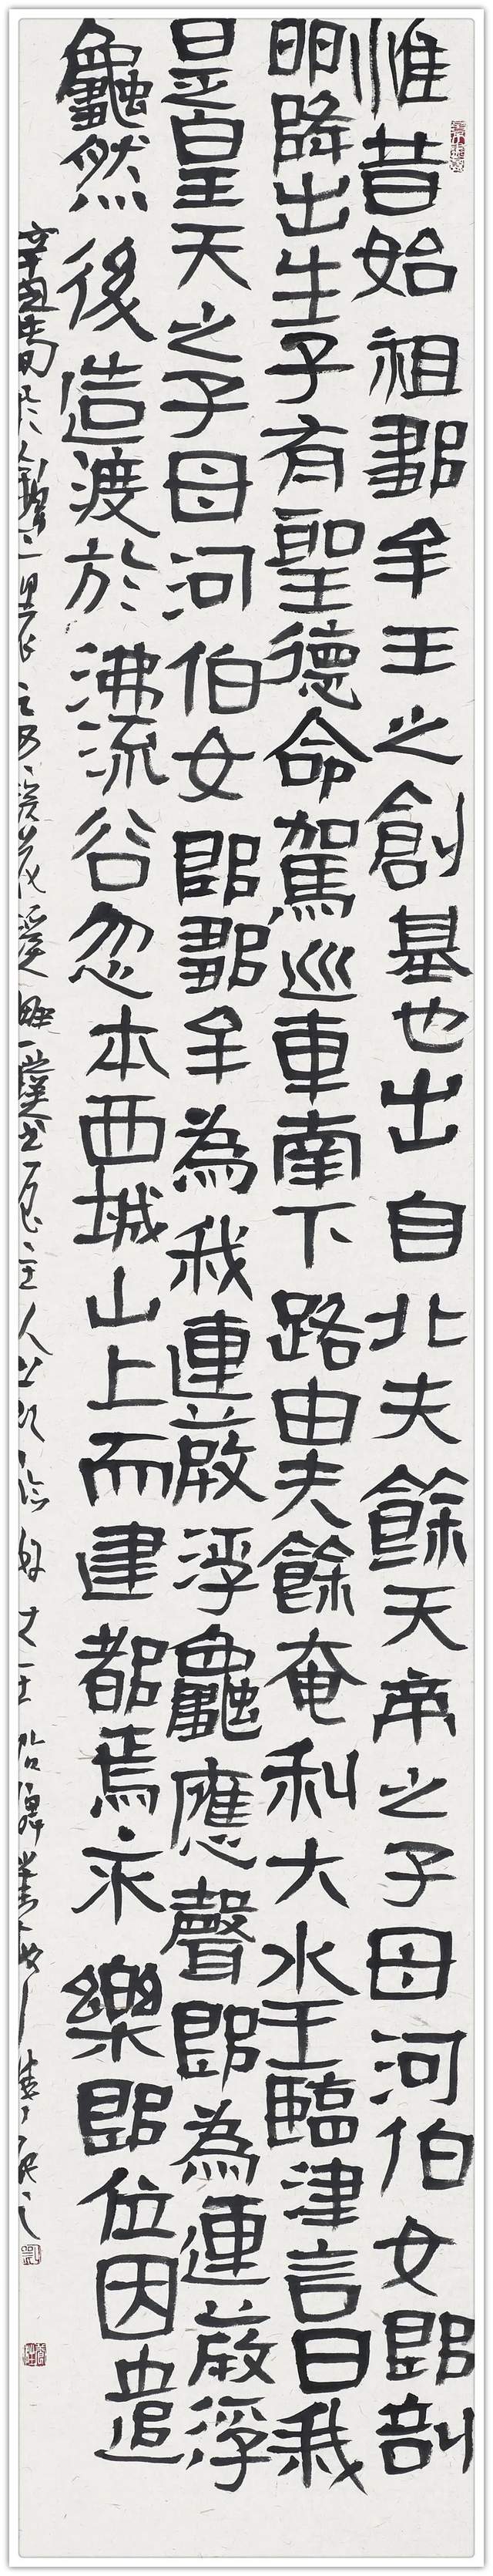 惟昔始祖鄒牟王之創基也出自北夫餘天帝之子母河伯女郎剖
卵降出生子有聖德命駕巡車南下路由夫餘奄利大水王臨津言曰我
是皇天之子母河伯女郎鄒牟為我連葭浮龜應聲即為連葭浮
龜然後造渡於沸流谷忽本西城山上而建都焉永樂即位因遣